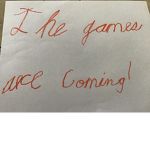 The games
are coming!